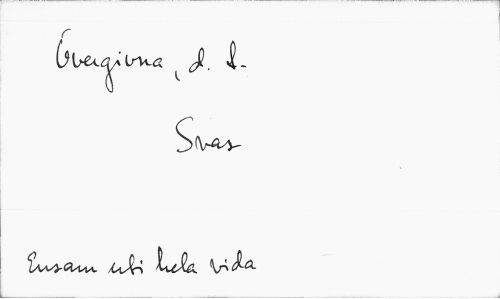 Övergivna, d. I.
Svas
Ensam uti hela vida